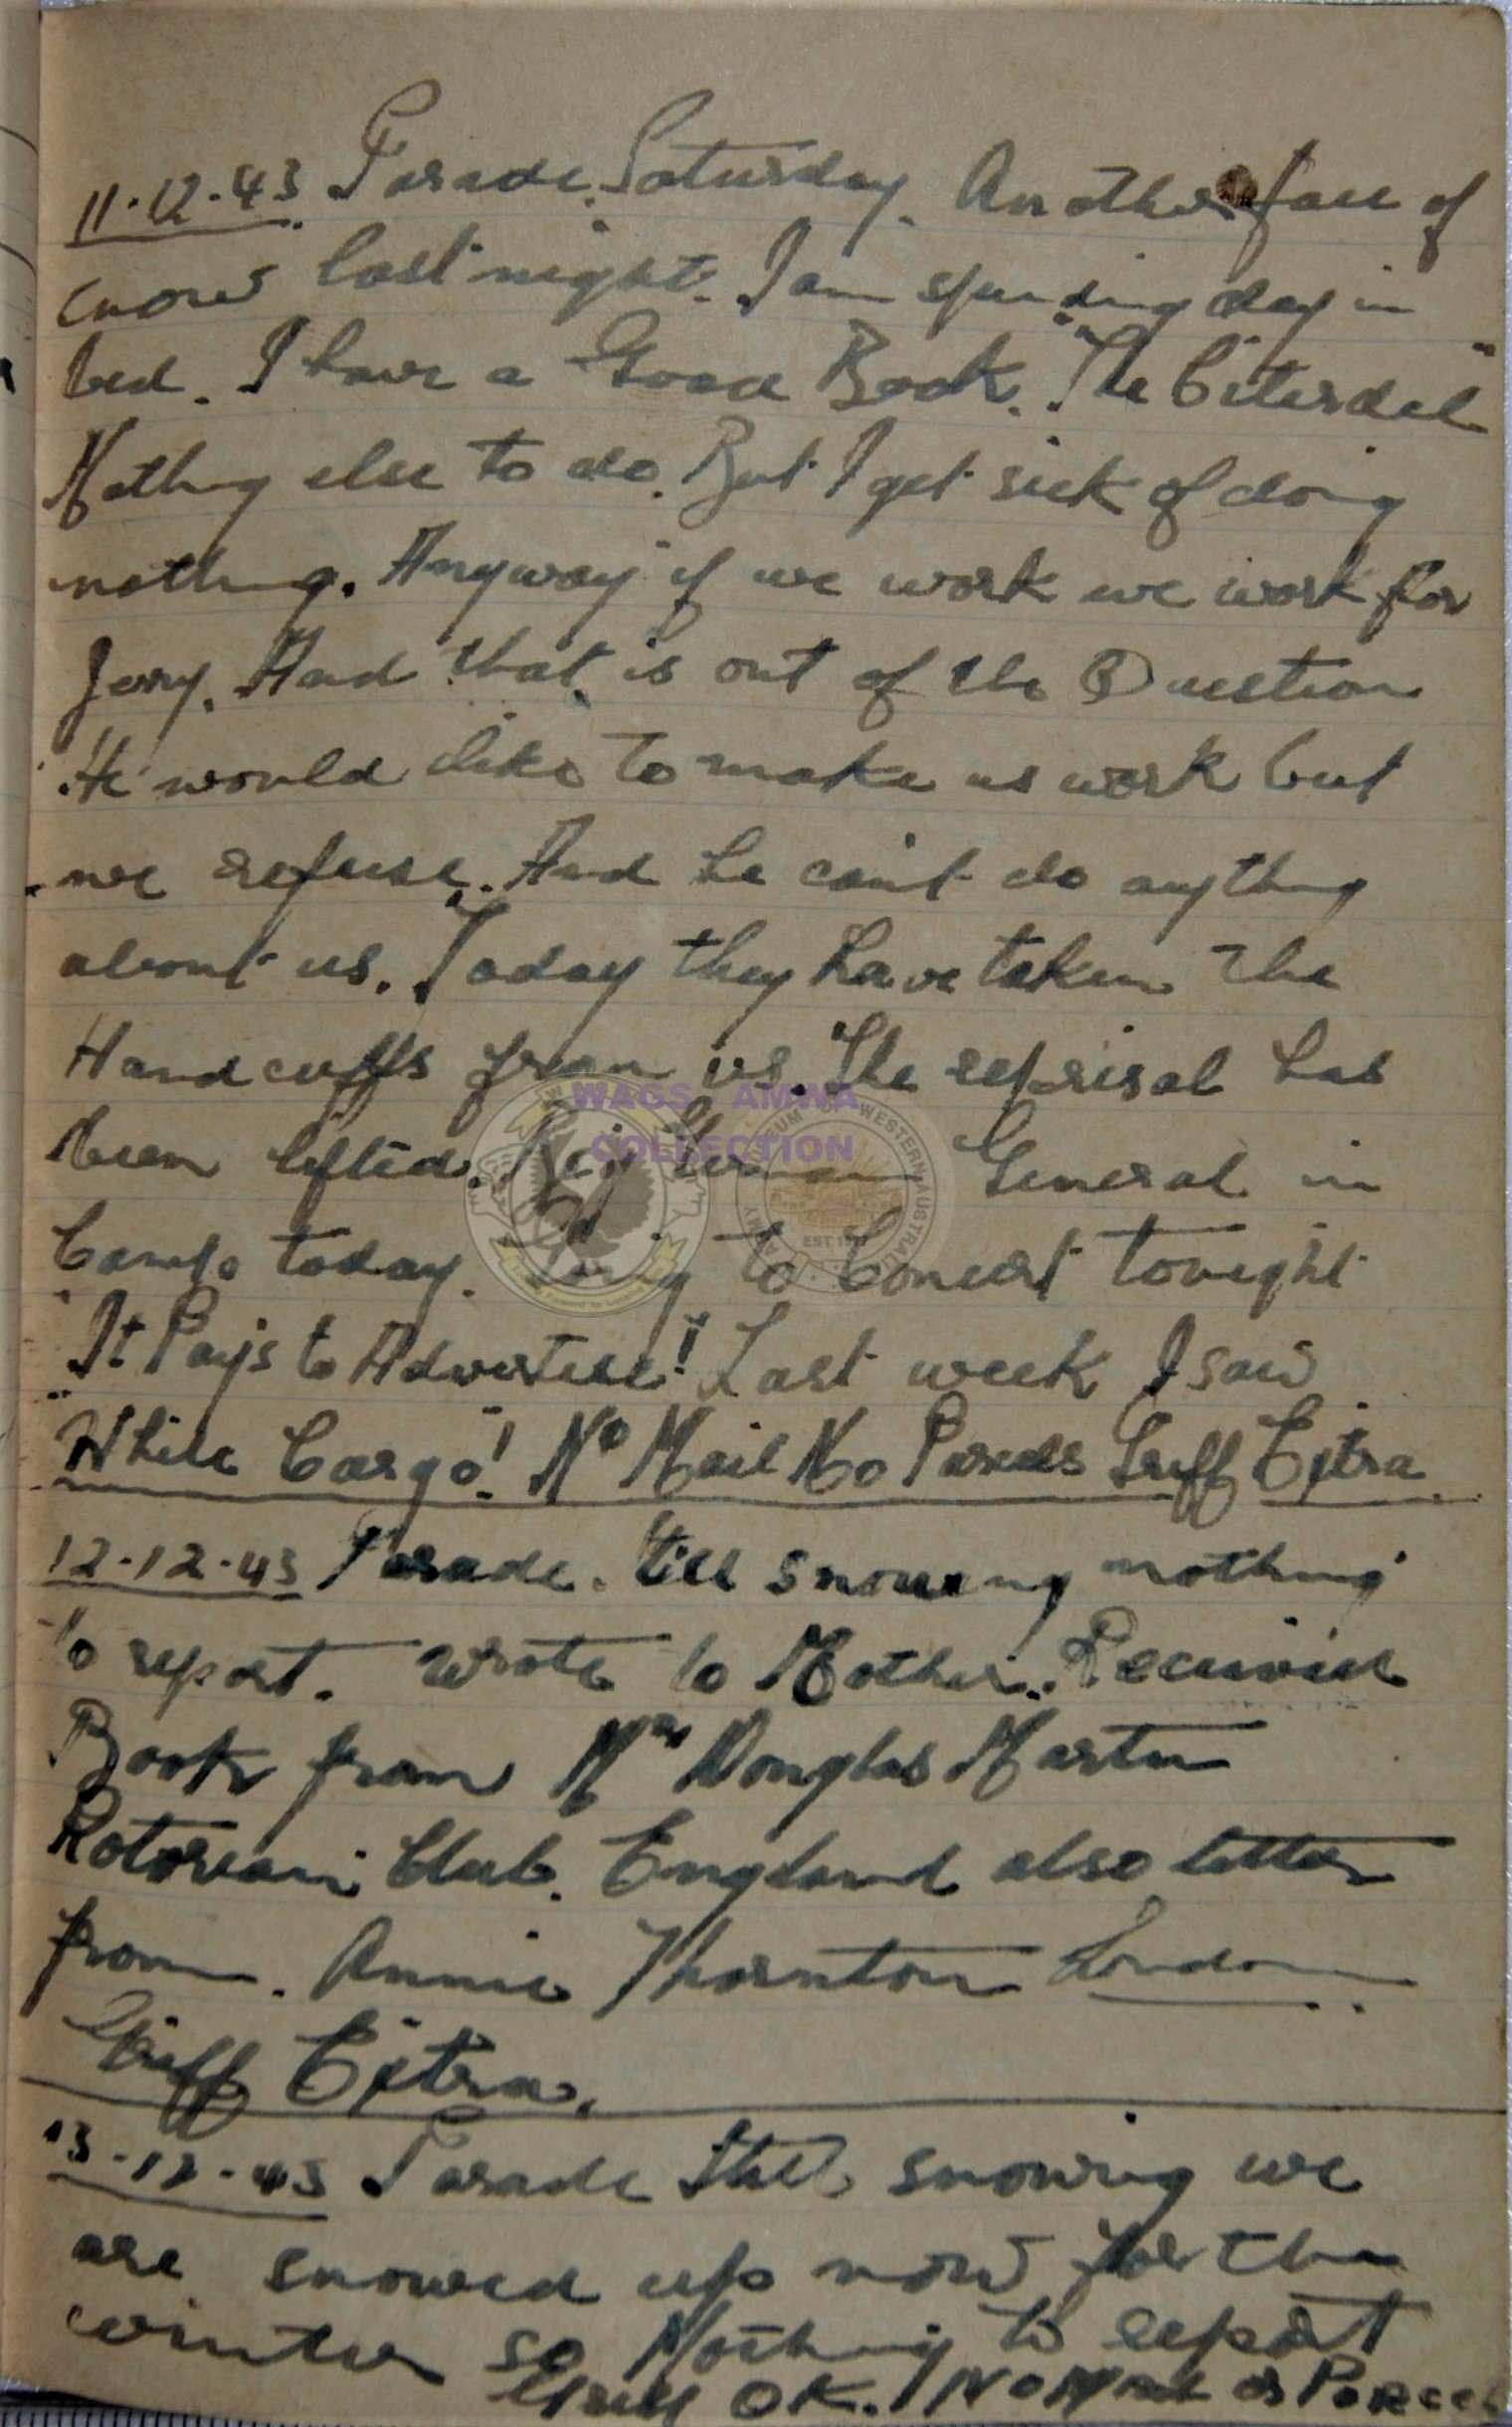 11.12.43 Parade. Saturday. Another fall of
snow last night. I am spending day in
bed. I have a Good Book. "The Citerdel"
Nothing else to do. But I get sick of doing
nothing. Anyway if we work we work for
Jerry. And that is out of the Question
He would like to make us work but
we refuse. And he can't do anything
about us. Today they have taken the
Handcuffs from us. The reprisal has
been lifted. Big German General in
Camp today. Going to Concert tonight
"It Pays to Advertise"! Last week I saw
"White Cargo"! No Mail No Parcels Griff Extra
12-12-43 Parade. Still snowing nothing
to report. Wrote to Mother. Received
Book from Mrs Douglas Martin
Rotorian Club. England also letter
from. Annie Thornton London
Griff Extra.
13-12-43 Parade Still snowing we
are snowed up now for the
winter so Nothing to report
Griff OK. No Mail or Parcel
WAGS - AMWA
COLLECTION
WESTERN AUSTRALIA